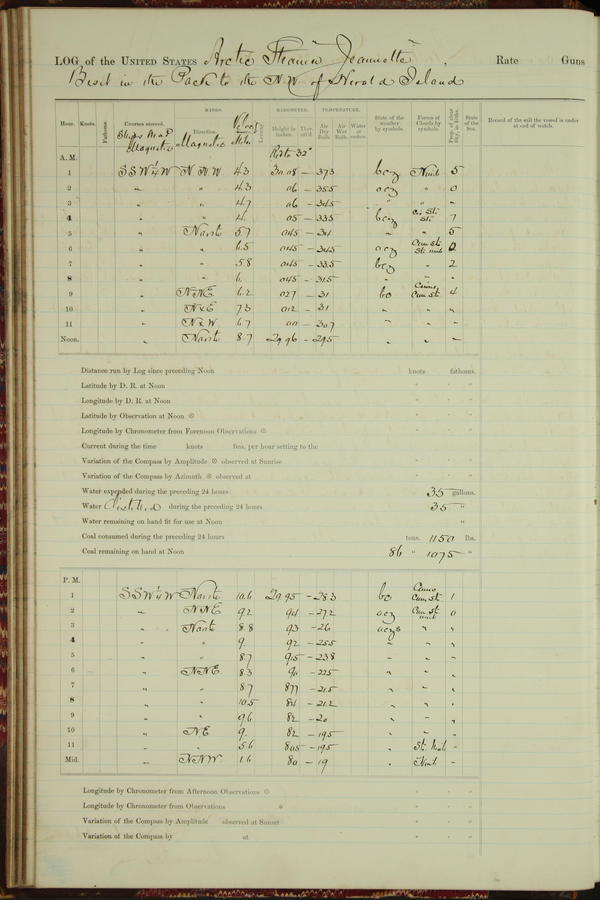 LOG of the UNITED STATES Arctic Steamer Jeannette, Rate Guns
Beset in the Pack to the N.W. of Herald Island
WINDS. BAROMETER. TEMPERATURE.
Hour. Knots. Fathoms. Courses steered. Ships Head Magnetic Direction Magnetic Veloc'y Miles Leeway Height in inches. Ther. att'd. Air Dry Bulb. Air Wet Bulb. Water at surface. State of the weather by symbols. Forms of Clouds by symbols. Prop. of clear Sky, in 10ths. State of the Sea. Record of the sail the vessel is under at end of watch.
A. M.
1 SSW¼W NNW 4.3 30.08 — 37.3 bcz Nimb 5
2 " " 4.3 06 — 35.5 ocz " 0
3 " " 4.7 06 — 34.5 " " "
4 " " 4. 05 — 33.5 bcz Ci St. St. 7
5 " North 5.7 045 — 34 " " 5
6 " " 6.5 045 — 34.5 ocz Cum St. St. Nimb 0
7 " " 5.8 045 — 33.5 bcz " 2
8 " " 6. 045 — 31.5 " " "
9 " NNE 6.2 027 — 31 bc Cirrus Cum St. 4
10 " NxE 7.3 012 — 31 " " "
11 " NxW 6.7 00 — 30.7 " " "
Noon. " North 8.7 29.96 — 29.5 " " "
Distance run by Log since preceding Noon knots fathoms.
Latitude by D. R. at Noon " " "
Longitude by D. R. at Noon " " "
Latitude by Observation at Noon " " "
Longitude by Chronometer from Forenoon Observations " " "
Current during the time knots fms. per hour setting to the
Variation of the Compass by Amplitude observed at Sunrise " " "
Variation of the Compass by Azimuth observed at " " "
Water expended during the preceding 24 hours 35 gallons.
Water distilled during the preceding 24 hours 35 "
Water remaining on hand fit for use at Noon "
Coal consumed during the preceding 24 hours tons. 1150 lbs.
Coal remaining on hand at Noon 86 " 1075 "
P. M.
1 SSW¼W North 10.6 29.95 — 28.3 bc Cirrus Cum St. 1
2 " NNE 9.2 94 — 27.2 ocz Cum St. Nimb 0
3 " North 8.8 93 — 26 oczs " "
4 " " 9. 92 — 25.5 " " "
5 " " 8.7 915 — 23.8 " " "
6 " NNE 8.3 90 — 22.5 " " "
7 " " 8.7 877 — 21.5 " " "
8 " " 10.5 84 — 21.2 " " "
9 " " 9.6 82 — 20 " " "
10 " NE 9. 82 — 19.5 " " "
11 " " 5.6 805 — 19.5 " St. Nimb "
Mid. " NNW 1.6 80 — 19 " Nimb "
Longitude by Chronometer from Afternoon Observations " " "
Longitude by Chronometer from Observations " " "
Variation of the Compass by Amplitude observed at Sunset " " "
Variation of the Compass by at " " "